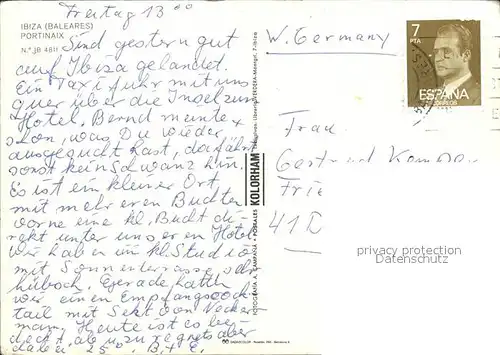 Freitag 13 00
IBIZA (BALEARES)
PORTINAIX
N.º JB 4811
Sind gestern gut
auf Ibiza gelandet.
Ein Taxi fuhr mit uns
quer über die Insel zum
Hotel. Bernd meinte
schon, was Du wieder
ausgesucht hast, da fährt
sonst kein Schwanz hin.
Es ist ein kleiner Ort,
mit mehreren Buchten
vorne eine kl. Bucht di-
rekt unter unseren Hotel
Wir haben ein kl. Studio
mit Sonnenterrasse sehr
hübsch. Gerade hatten
wir einen Empfangscock-
tail mit Sekt von Necker-
mann. Heute ist es be-
deckt, ab u. zu regnets aber
dabei 25° B. + E.
FOTOGRAFIA A. CAMPAÑA - POSTALES KOLORHAM
W. Germany
7
PTA
ESPAÑA
CORREOS
Frau
Gertrud
Frie
41
privacy protection
Datenschutz